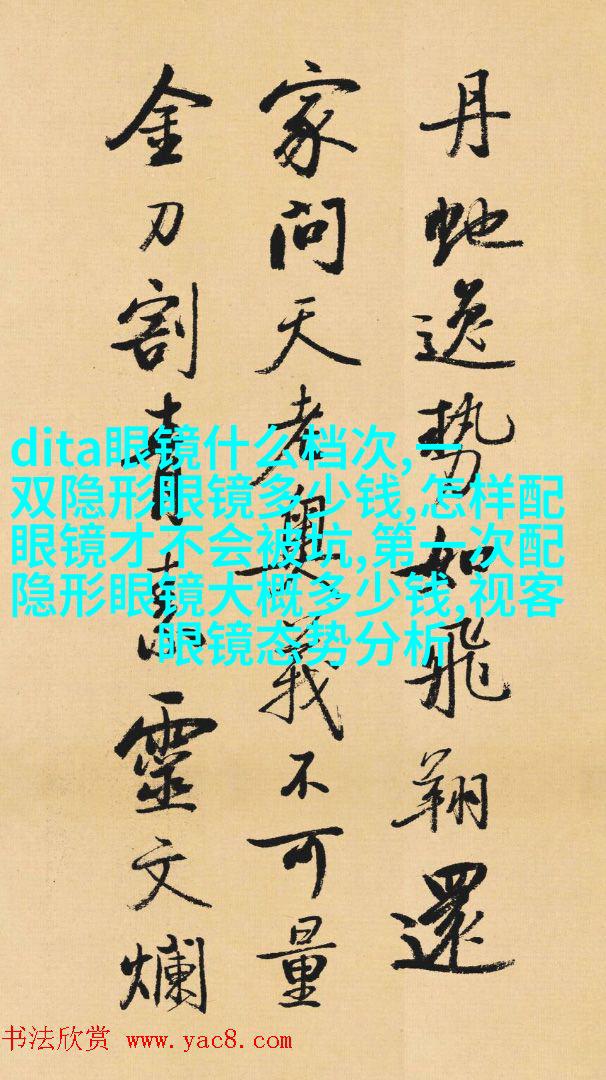 丹虵逸势如飛翔還
家問天老奥義不可量
金刀割青素靈文爛
dita眼镜什么档次,一
双隐形眼镜多少钱,怎样配
眼镜才不会被坑,第一次配
隐形眼镜大概多少钱,视客
眼镜态势分析
书法欣赏 www.yac8.com